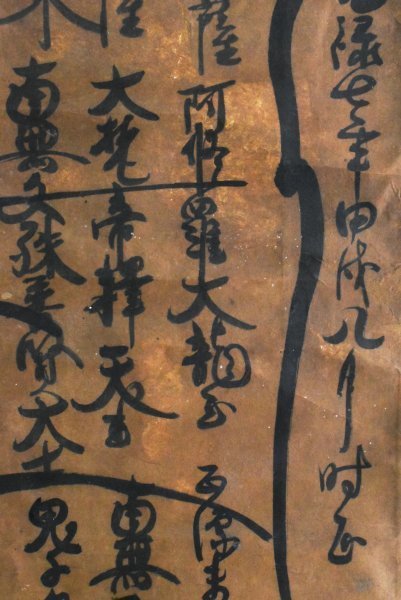 禄七年甲戌八月時正
薩 阿修羅大龍王
大梵帝釋天王 南無
南無文殊普賢大士 鬼子